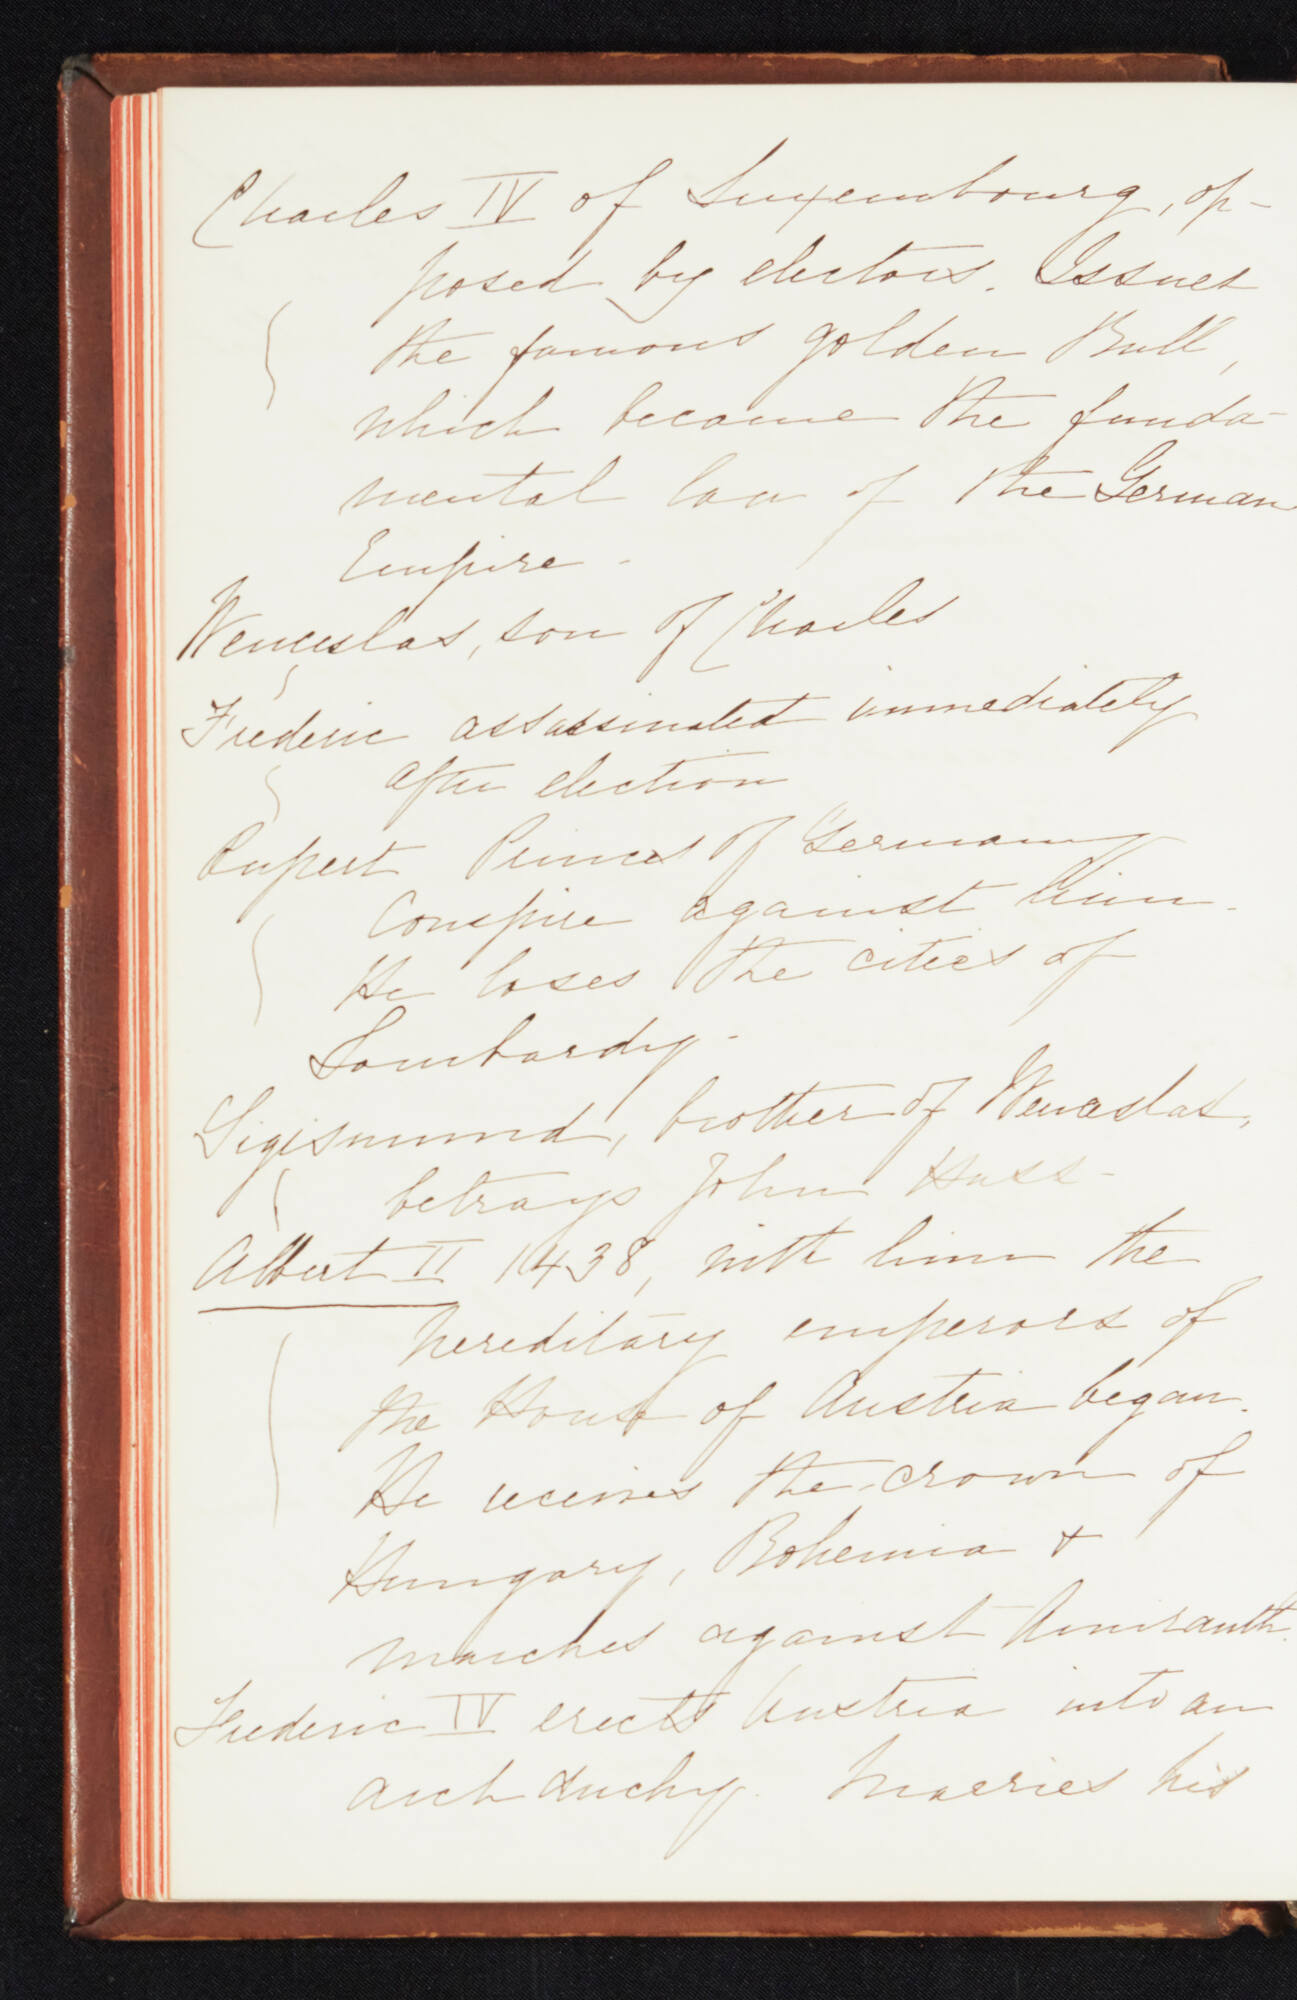 Charles IV of Luxembourg, op-
posed by electors. Issues
the famous golden Bull,
which became the funda-
mental law of the German
Empire.
Wenceslas, son of Charles
Frederic assassinated immediately
after election
Rupert Princes of Germany
conspire against him.
He loses the cities of
Lombardy.
Sigismund, brother of Wenceslas,
betrays John Huss-
Albert II 1438, with him the
hereditary emperors of
the House of Austria began.
He receives the crown of
Hungary, Bohemia &
marches against Amurauth.
Frederic IV erects Austria into an
arch duchy. Marries his